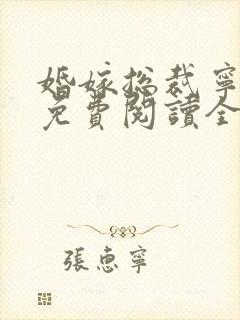 婚嫁総裁寧
免費閱讀全
張惠寧